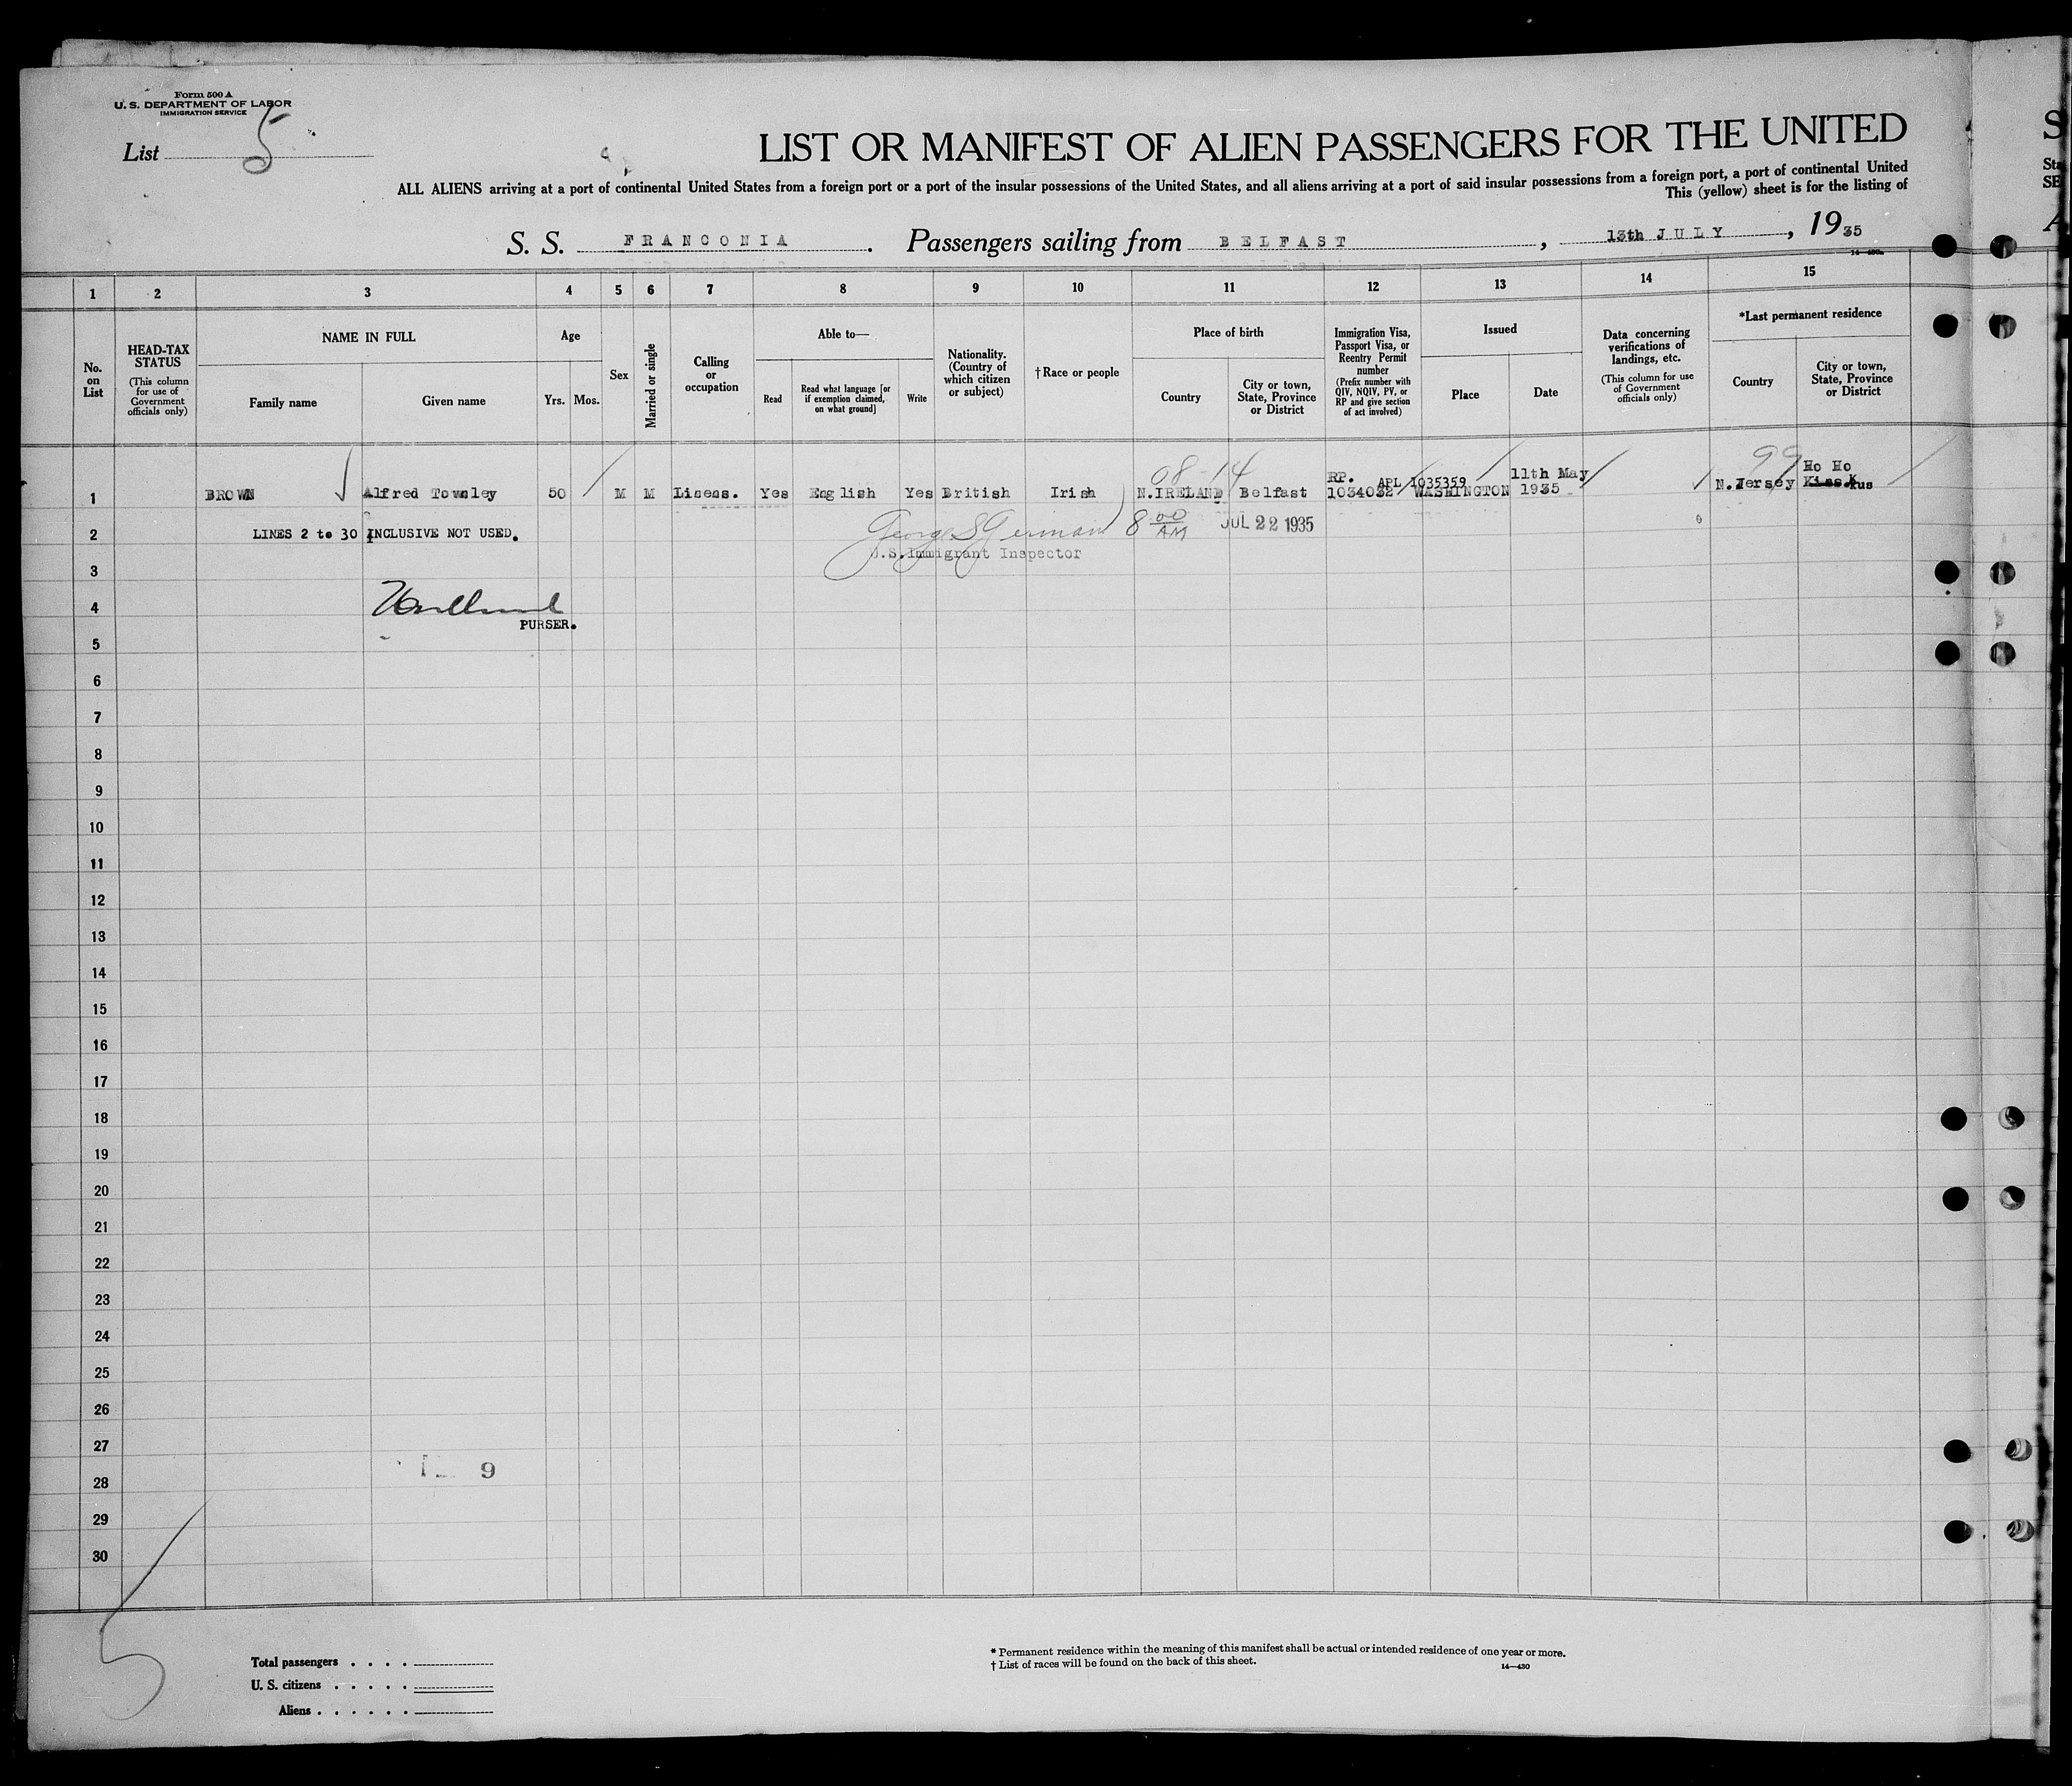 Form 500 A
U. S. DEPARTMENT OF LABOR
IMMIGRATION SERVICE
List 5
LIST OR MANIFEST OF ALIEN PASSENGERS FOR THE UNITED
ALL ALIENS arriving at a port of continental United States from a foreign port or a port of the insular possessions of the United States, and all aliens arriving at a port of said insular possessions from a foreign port, a port of continental United
This (yellow) sheet is for the listing of
S. S. FRANCONIA . Passengers sailing from BELFAST , 13th JULY , 1935
1 2 3 4 5 6 7 8 9 10 11 12 13 14 15
No. on List
HEAD-TAX STATUS
(This column for use of Government officials only)
NAME IN FULL
Family name
Given name
Age
Yrs. Mos.
Sex
Married or single
Calling or occupation
Able to—
Read
Read what language [or if exemption claimed, on what ground]
Write
Nationality. (Country of which citizen or subject)
†Race or people
Place of birth
Country
City or town, State, Province or District
Immigration Visa, Passport Visa, or Reentry Permit number
(Prefix number with QIV, NQIV, PV, or RP and give section of act involved)
Issued
Place
Date
Data concerning verifications of landings, etc.
(This column for use of Government officials only)
*Last permanent residence
Country
City or town, State, Province or District
08-14 99
RP. APL 1035359 11th May Ho Ho
1 BROWN Alfred Townley 50 M M Licens. Yes English Yes British Irish N.IRELAND Belfast 1034032 WASHINGTON 1935 N.Jersey Kiss K kus
2 LINES 2 to 30 INCLUSIVE NOT USED. George S German 8 00 AM JUL 22 1935
U.S.Immigrant Inspector
3
4
PURSER.
5
6
7
8
9
10
11
12
13
14
15
16
17
18
19
20
21
22
23
24
25
26
27
9
28
29
30
5
Total passengers . . . .
U. S. citizens . . . . .
Aliens . . . . . .
* Permanent residence within the meaning of this manifest shall be actual or intended residence of one year or more.
† List of races will be found on the back of this sheet.
14—430